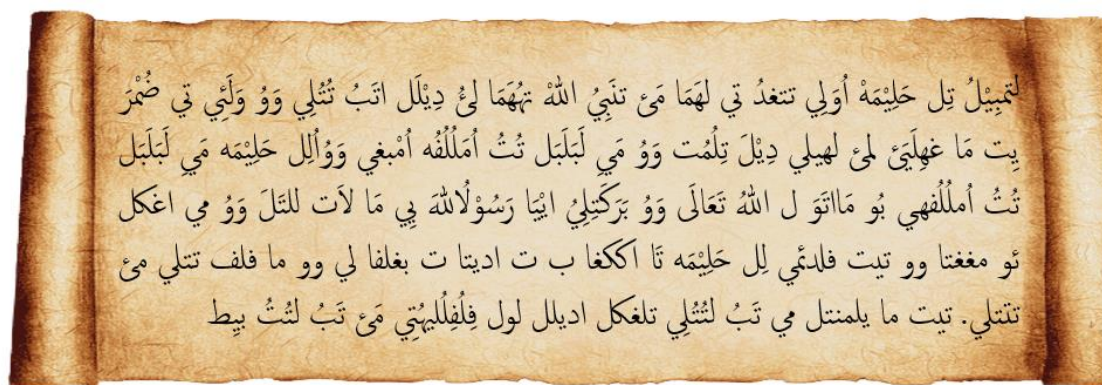 لتمبِيْلُ تِل حَلِيْمَهْ اُوَلِي تتغدُ تي لهَمَا مَئ تلَبِيُ اللهْ تهُهَمَا لئُ دِيْلَل اتَبُ تُتُلِي وَوُ وَلَئِي تي ضُمْرَ
يِت مَا غهِلَيَئ لمئ لهيلي دِيْلَ تِلُمُت وَوُ مَي لَبَلَبَل تُتُ اُمَلُلُفُه اُمْبغي وَوُاُلِل حَلِيْمَه مَي لَبَلَبَل
تُتُ اُملُلُفهي بُو مَااتَوَ ل اللهُ تَعَالَى وَوُ بَرَكَتِلِيُ ايْيَا رَسُوْلُاللهَ يِي مَا لاَت للتَلَ وَوُ مي اغكل
ئو مغغتا وو تيت فلدئمي لِل حَلِيْمَه تَا اككغا ب ت اديتا ت بغلفا لي وو ما فلف تتلي مئ
تنتلي. تيت ما يلمنتل مي تَبُ لتُتُلِي تلغكل اديلل لول فِلُفِلُليهُتِي مَئ تَبُ لتُتُ بيِط